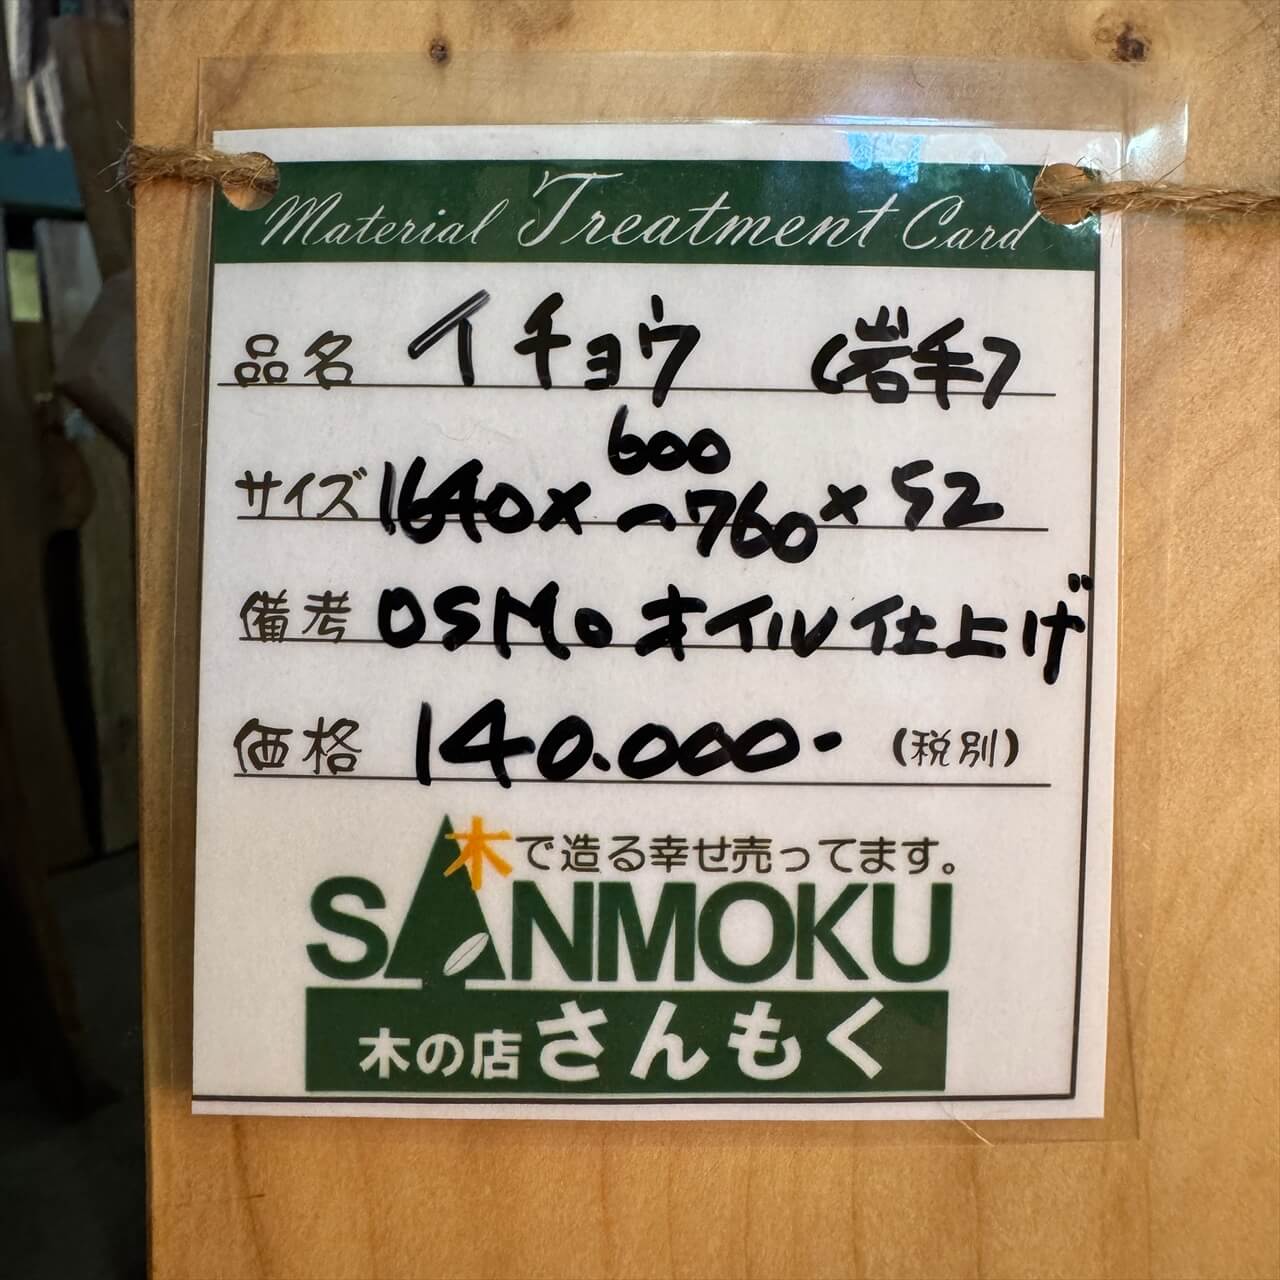 Material Treatment Card
品名 イチョウ (岩手)
サイズ 1640× 600〜760 × 52
備考 OSMOオイル仕上げ
価格 140.000- (税別)
木で造る幸せ売ってます。
SANMOKU
木の店 さんもく